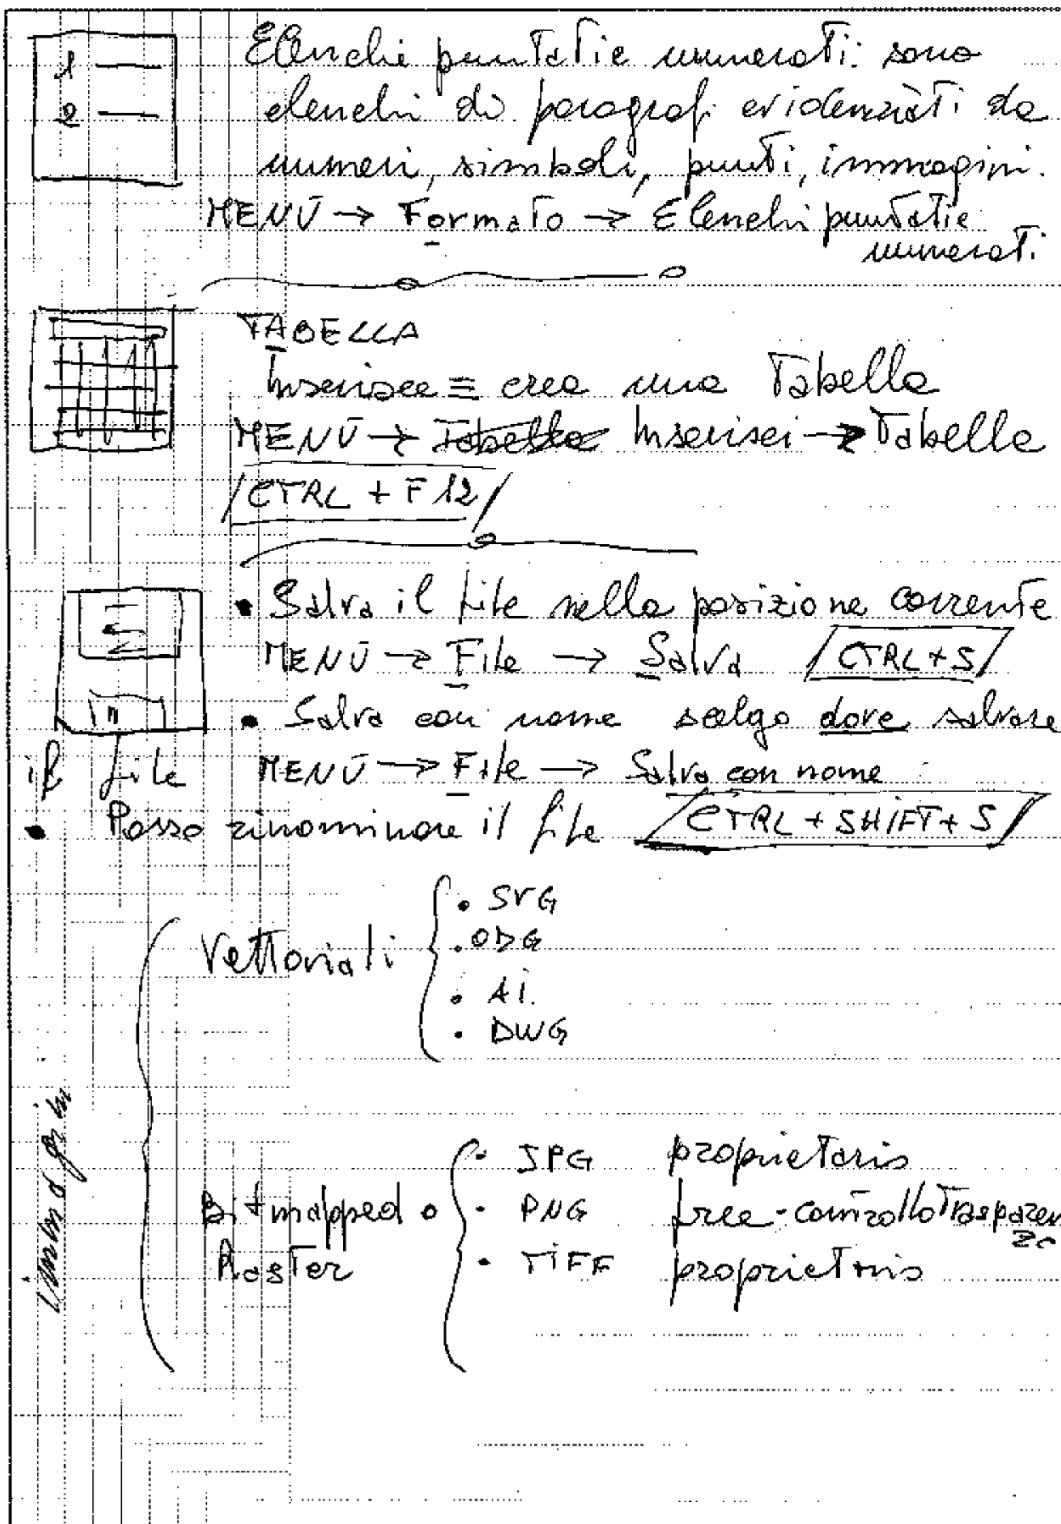 1
2
Elenchi puntati e numerati: sono
elenchi di paragrafi evidenziati da
numeri, simboli, punti, immagini.
MENÙ → Formato → Elenchi puntati e
numerati
TABELLA
Inserisce ≡ crea una Tabella
MENÙ → Tabella Inserisci → Tabella
CTRL + F12
• Salva il file nella posizione corrente
MENÙ → File → Salva CTRL+S
• Salva con nome scelgo dove salvare
il file MENÙ → File → Salva con nome
• Posso rinominare il file CTRL + SHIFT + S
immagini
Vettoriali
• SVG
• ODG
• AI.
• DWG
Bitmapped o
Raster
• JPG proprietario
• PNG free - controllo Trasparen
za
• TIFF proprietario